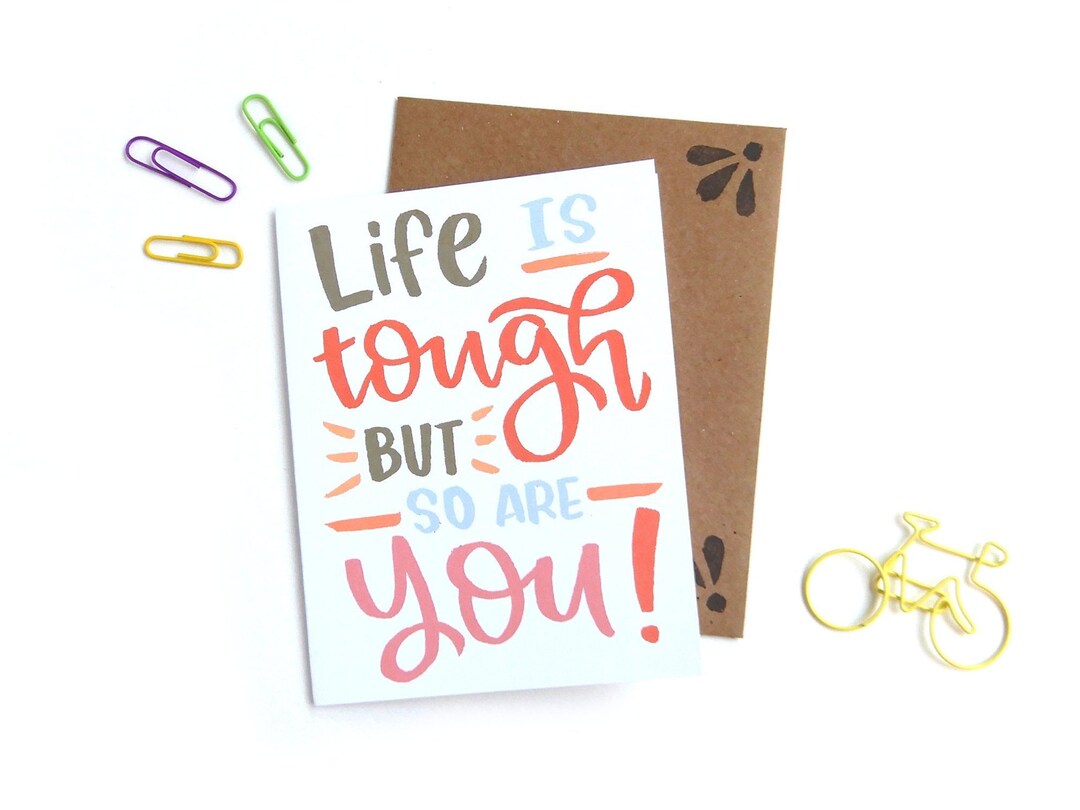 Life IS
tough
BUT
SO ARE
you!